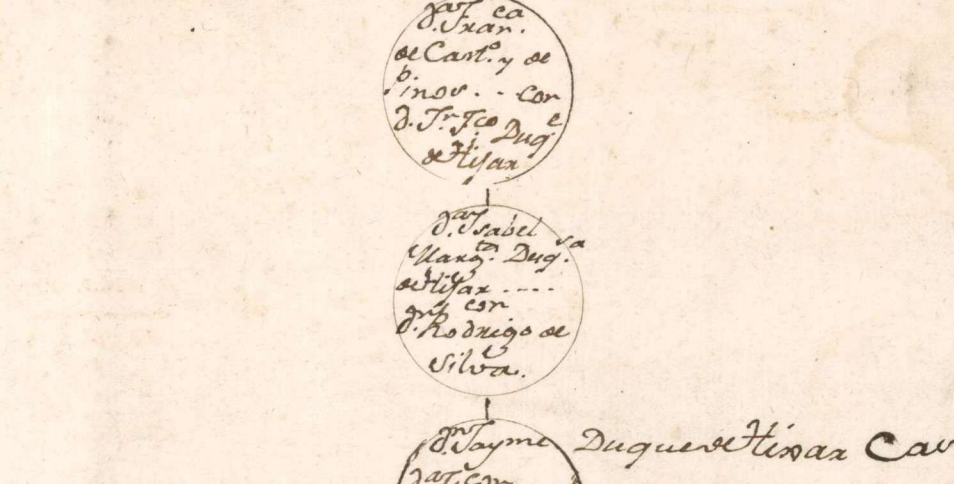 d.ª Fran.ca
de Cast.º y de
Pinos . . con
d. Jn. Fco Duq.e
de Hijar
d.ª Isabel
Marg.ta Duq.sa
de Hijar ....
con
d.n Rodrigo de
Silva.
d.n Jayme
Duque de Hixar
d.ª con